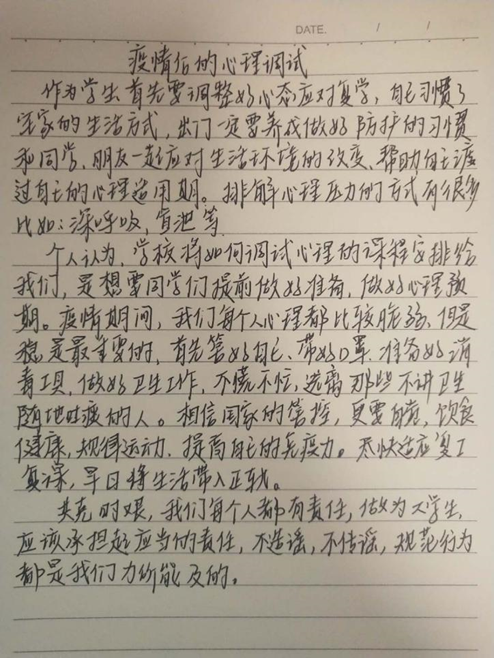 DATE. / /
疫情后的心理调试
作为学生首先要调整好心态应对复学，自己习惯了
宅家的生活方式，出门一定要养成做好防护的习惯
和同学、朋友一起应对生活环境的改变、帮助自己渡
过自己的心理适用期。排解心理压力的方式有很多
比如：深呼吸，冥想等
个人认为，学校将如何调试心理的课程安排给
我们，是想要同学们提前做好准备，做好心理预
期。疫情期间，我们每个人心理都比较脆弱、但是
稳是最重要的，首先管好自己、带好口罩、准备好消
毒工具，做好卫生工作，不慌不忙，远离那些不讲卫生
随地吐痰的人。相信国家的管控，更要自觉，饮食
健康，规律运动，提高自己的免疫力。尽快适应复工
复课，早日将生活带入正轨。
共克时艰，我们每个人都有责任，做为大学生，
应该承担起应当的责任，不造谣，不传谣，规范行为
都是我们力所能及的。